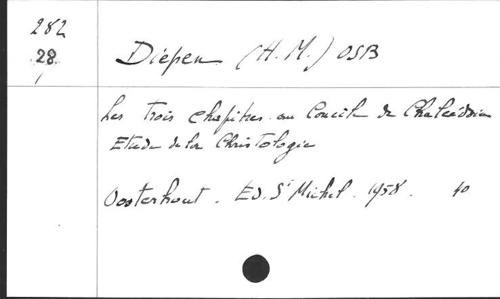 282
28
Diepen (H. M.) OSB
Les Trois Chapitres au Concile de Chalcédoine
Etude de la Christologie
Oosterhout. Ed. St Michel. 1958. 40